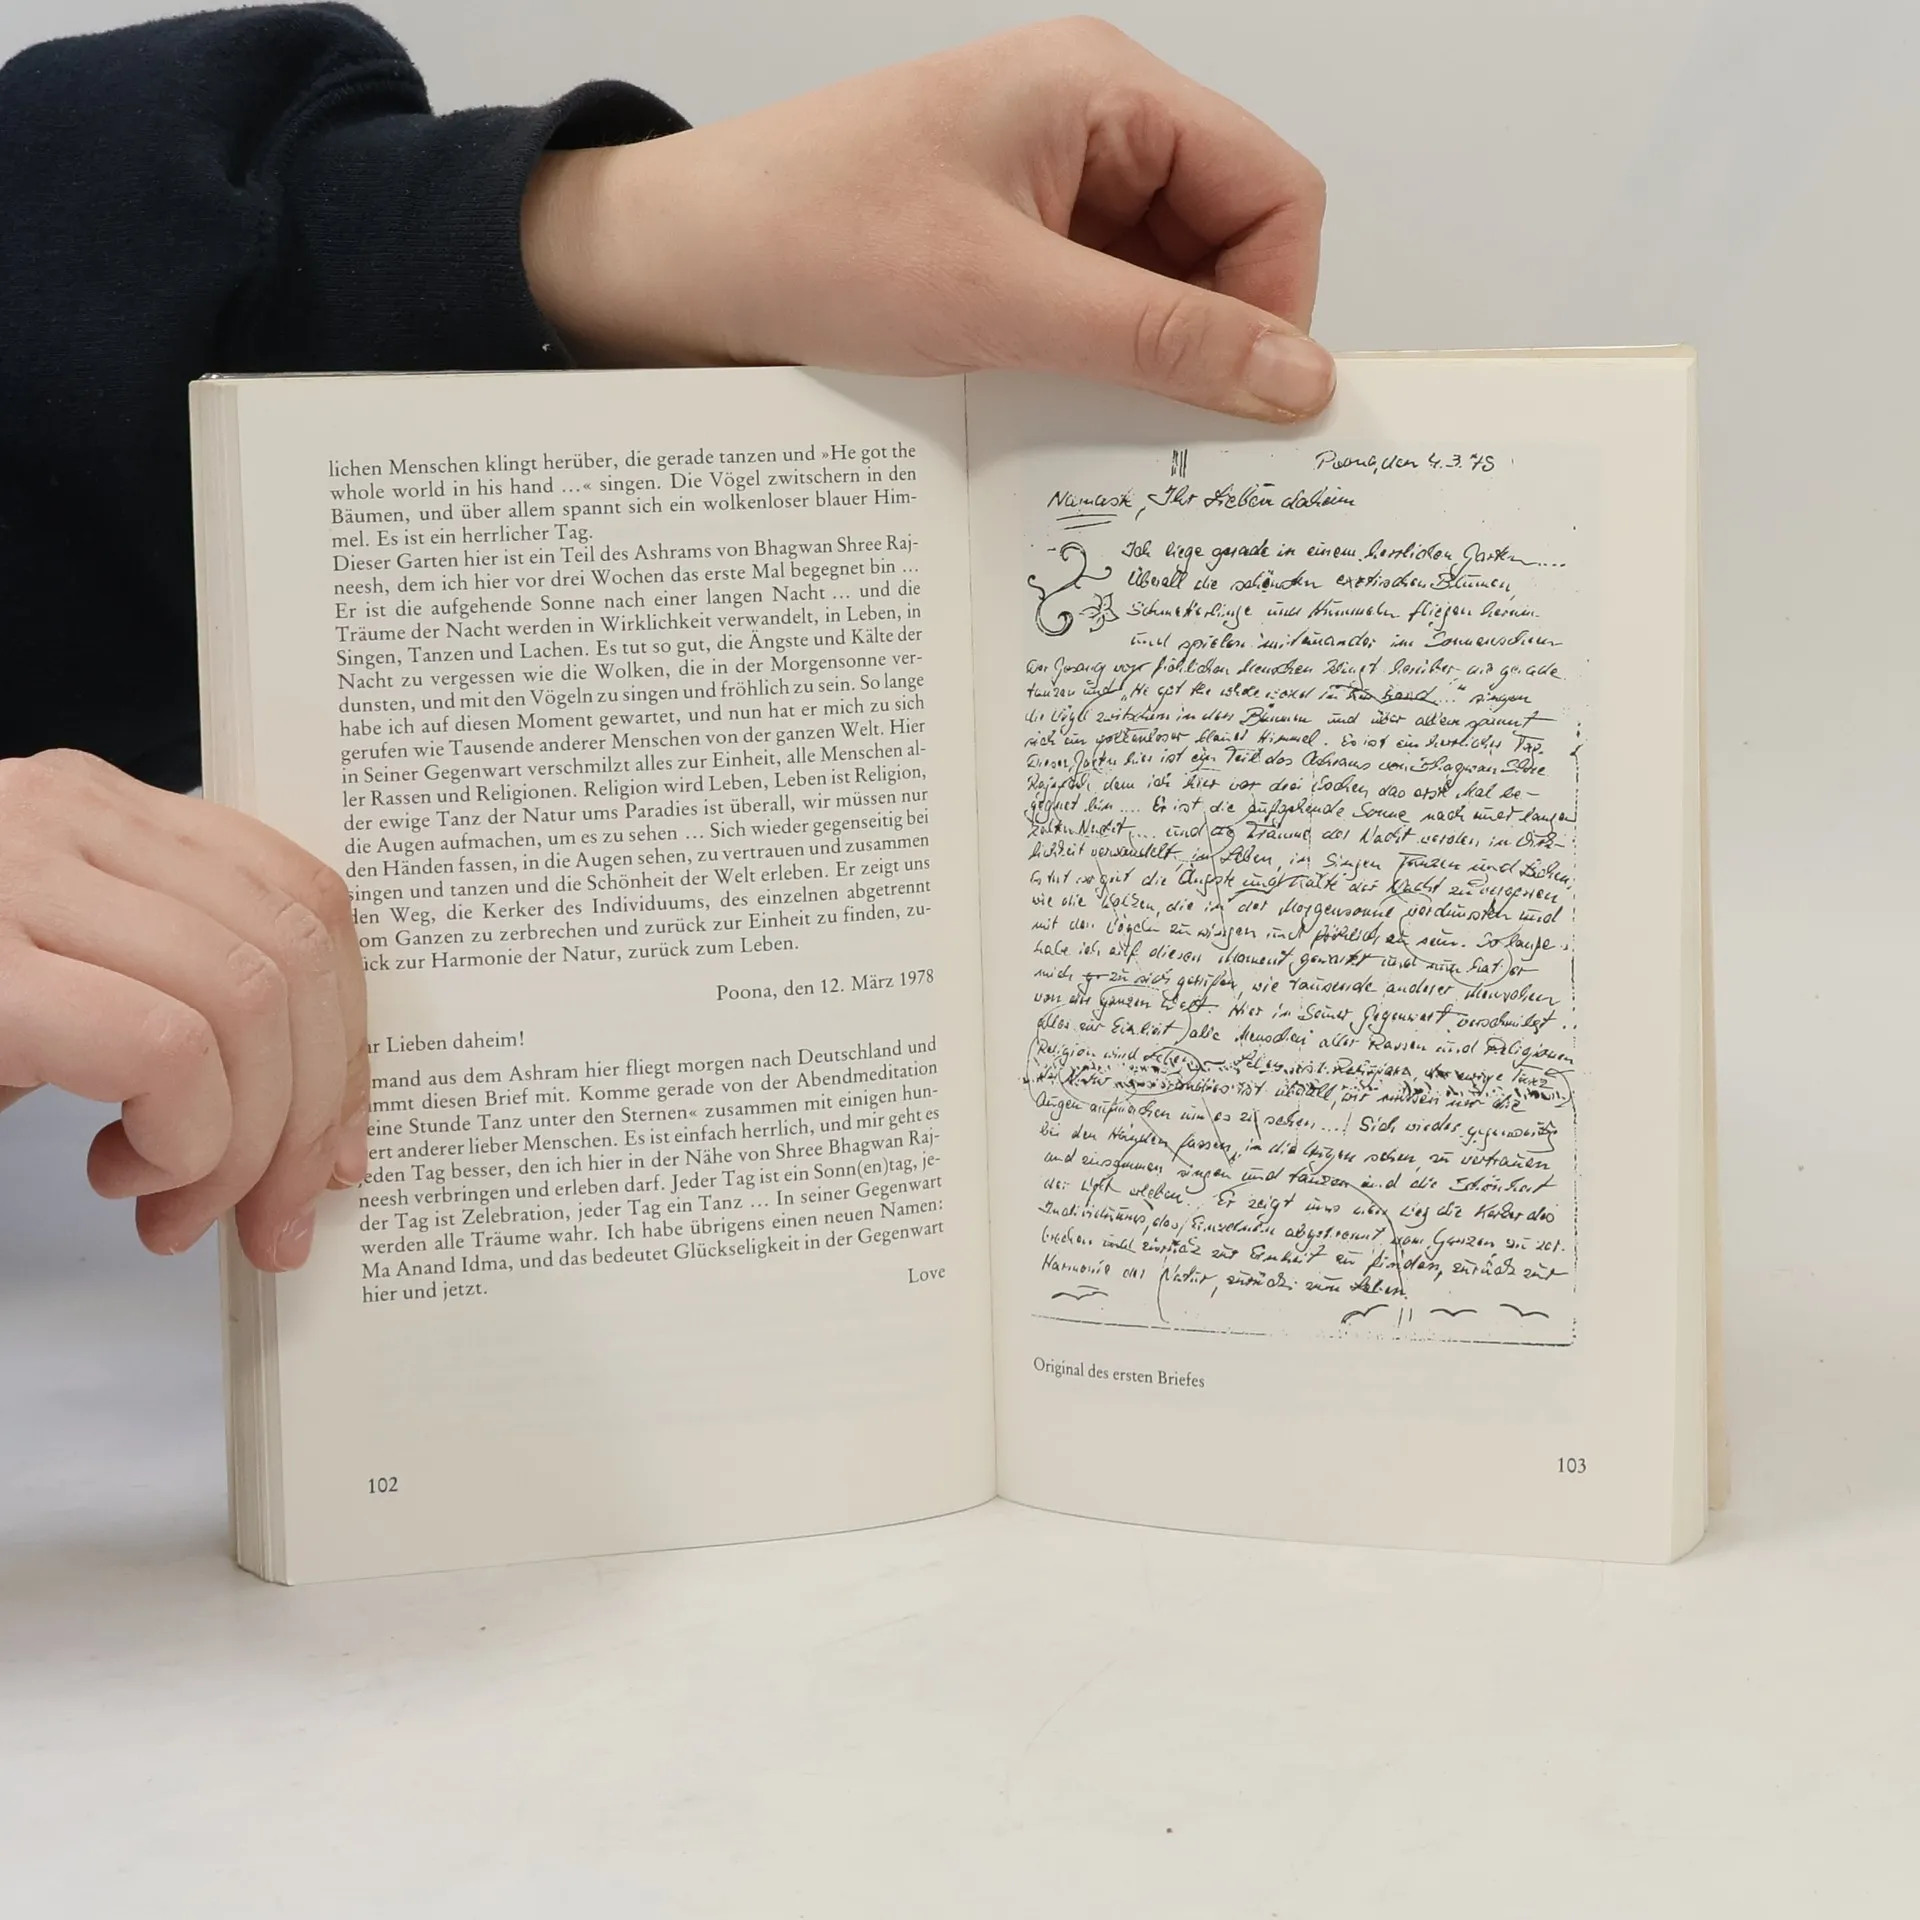 lichen Menschen klingt herüber, die gerade tanzen und »He got the
whole world in his hand ...« singen. Die Vögel zwitschern in den
Bäumen, und über allem spannt sich ein wolkenloser blauer Him-
mel. Es ist ein herrlicher Tag.
Dieser Garten hier ist ein Teil des Ashrams von Bhagwan Shree Raj-
neesh, dem ich hier vor drei Wochen das erste Mal begegnet bin ...
Er ist die aufgehende Sonne nach einer langen Nacht ... und die
Träume der Nacht werden in Wirklichkeit verwandelt, in Leben, in
Singen, Tanzen und Lachen. Es tut so gut, die Ängste und Kälte der
Nacht zu vergessen wie die Wolken, die in der Morgensonne ver-
dunsten, und mit den Vögeln zu singen und fröhlich zu sein. So lange
habe ich auf diesen Moment gewartet, und nun hat er mich zu sich
gerufen wie Tausende anderer Menschen von der ganzen Welt. Hier
in Seiner Gegenwart verschmilzt alles zur Einheit, alle Menschen al-
ler Rassen und Religionen. Religion wird Leben, Leben ist Religion,
der ewige Tanz der Natur ums Paradies ist überall, wir müssen nur
die Augen aufmachen, um es zu sehen ... Sich wieder gegenseitig bei
den Händen fassen, in die Augen sehen, zu vertrauen und zusammen
singen und tanzen und die Schönheit der Welt erleben. Er zeigt uns
den Weg, die Kerker des Individuums, des einzelnen abgetrennt
om Ganzen zu zerbrechen und zurück zur Einheit zu finden, zu-
ück zur Harmonie der Natur, zurück zum Leben.
Poona, den 12. März 1978
r Lieben daheim!
mand aus dem Ashram hier fliegt morgen nach Deutschland und
mmt diesen Brief mit. Komme gerade von der Abendmeditation
eine Stunde Tanz unter den Sternen« zusammen mit einigen hun-
ert anderer lieber Menschen. Es ist einfach herrlich, und mir geht es
jeden Tag besser, den ich hier in der Nähe von Shree Bhagwan Raj-
neesh verbringen und erleben darf. Jeder Tag ist ein Sonn(en)tag, je-
der Tag ist Zelebration, jeder Tag ein Tanz ... In seiner Gegenwart
werden alle Träume wahr. Ich habe übrigens einen neuen Namen:
Ma Anand Idma, und das bedeutet Glückseligkeit in der Gegenwart
hier und jetzt.
Love
102
Poona, den 4.3.78
Namaste, Ihr Lieben daheim
Ich liege gerade in einem herrlichen Garten....
Überall die schönsten exotischen Blumen,
Schmetterlinge und Hummeln fliegen herum
und spielen miteinander im Sonnenschein
Der Gesang von fröhlichen Menschen klingt herüber die gerade
tanzen und „He got the whole world in his hand..." singen
die Vögel zwitschern in den Bäumen und über allem spannt
sich ein wolkenloser blauer Himmel. Es ist ein herrlicher Tag.
Dieser Garten hier ist ein Teil des Ashrams von Bhagwan Shree
Rajneesh, dem ich hier vor drei Wochen das erste Mal be-
gegnet bin.... Er ist die aufgehende Sonne nach einer langen
Nacht.... und die Träume der Nacht werden in Wirk-
lichkeit verwandelt, in Leben, in Singen Tanzen und Lachen,
Es tut so gut die Ängste und Kälte der Nacht zu vergessen
wie die Wolken, die in der Morgensonne verdunsten und
mit den Vögeln zu singen und fröhlich zu sein. So lange
habe ich auf diesen Moment gewartet und nun hat er
mich zu sich gerufen, wie tausende anderer Menschen
von der ganzen Welt. Hier in Seiner Gegenwart verschmilzt
alles zur Einheit, alle Menschen aller Rassen und Religionen
Religion wird Leben, Leben ist Religion, der ewige Tanz
der Natur ist überall, wir müssen nur die
Augen aufmachen um es zu sehen...! Sich wieder gegenseitig
bei den Händen fassen, in die Augen sehen, zu vertrauen
und zusammen singen und tanzen und die Schönheit
der Welt erleben. Er zeigt uns den Weg die Kerker des
Individuums, des Einzelnen abgetrennt vom Ganzen zu zer-
brechen und zurück zur Einheit zu finden, zurück zur
Harmonie der Natur, zurück zum Leben.
Original des ersten Briefes
103